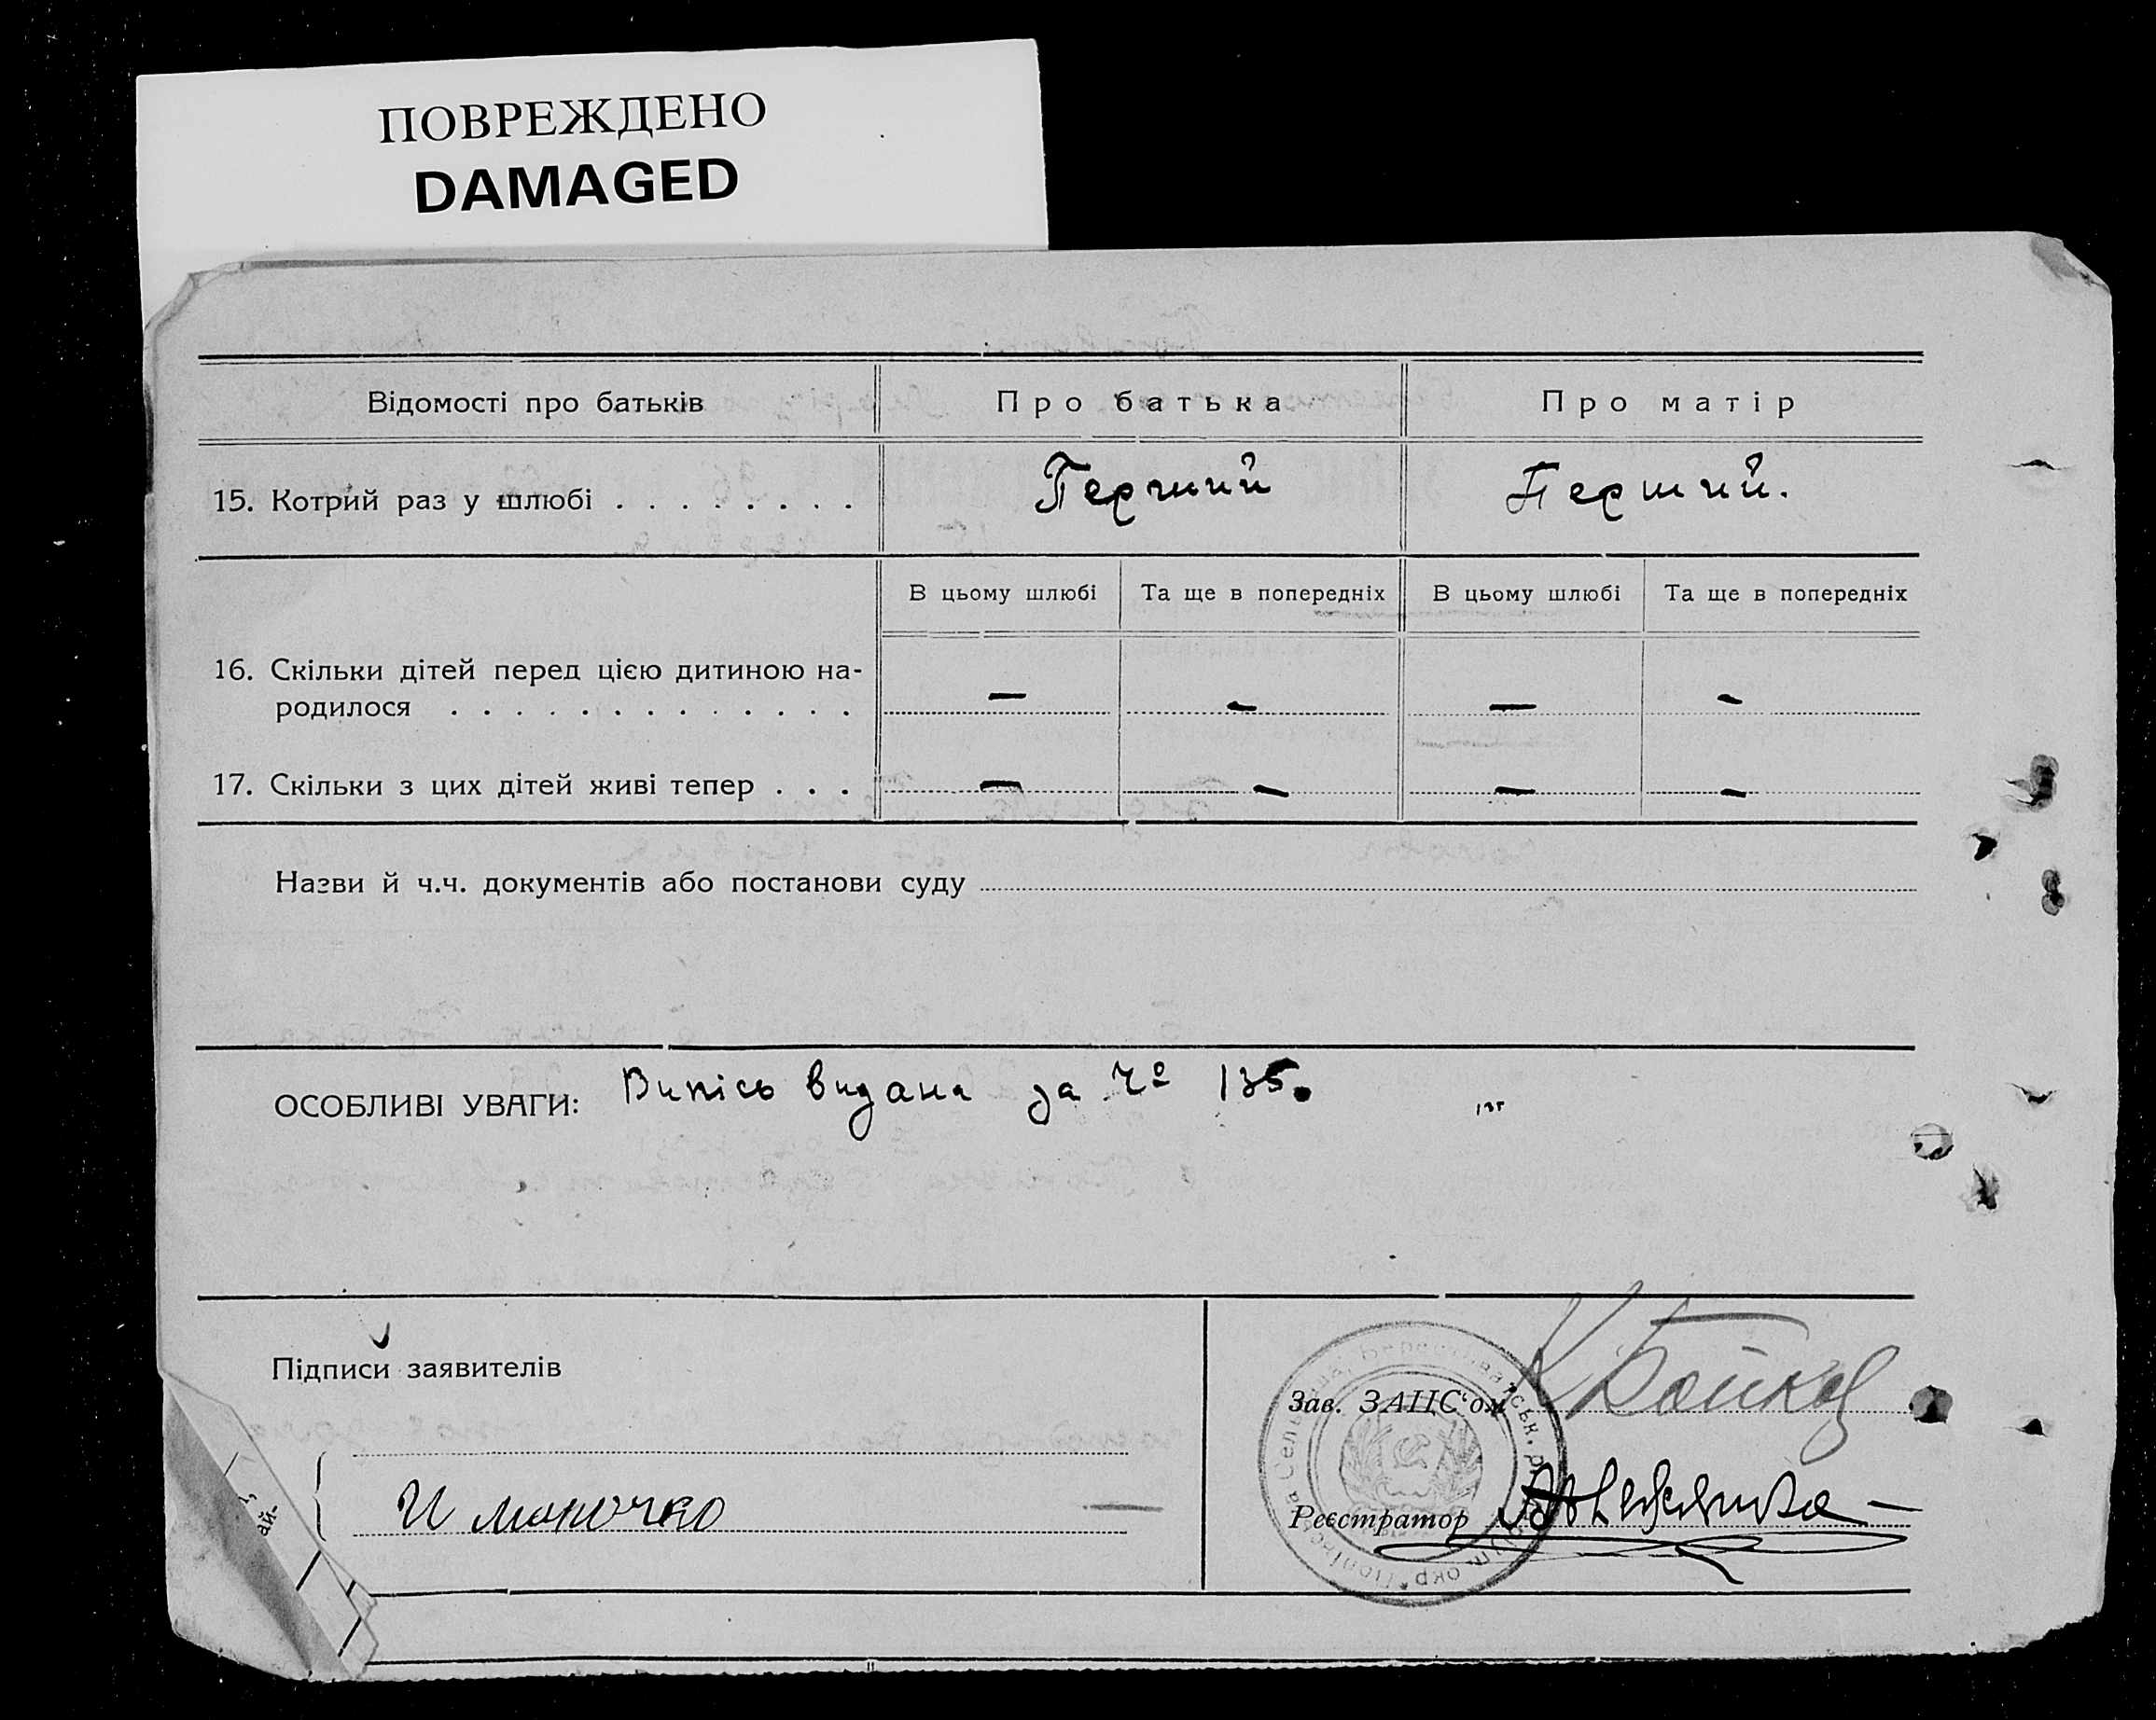 ПОВРЕЖДЕНО
DAMAGED
Відомості про батьків
Про батька
Про матір
15. Котрий раз у шлюбі . . . . . . . .
Перший
Перший.
В цьому шлюбі
Та ще в попередніх
В цьому шлюбі
Та ще в попередніх
16. Скільки дітей перед цією дитиною на-
родилося . . . . . . . . . . . . .
— — — —
17. Скільки з цих дітей живі тепер . . .
— — — —
Назви й ч.ч. документів або постанови суду
ОСОБЛИВІ УВАГИ: Випісь видана за Чº 135.
Підписи заявителів
Зав. ЗАЦС'ом К Бойко
Реєстратор
ай-